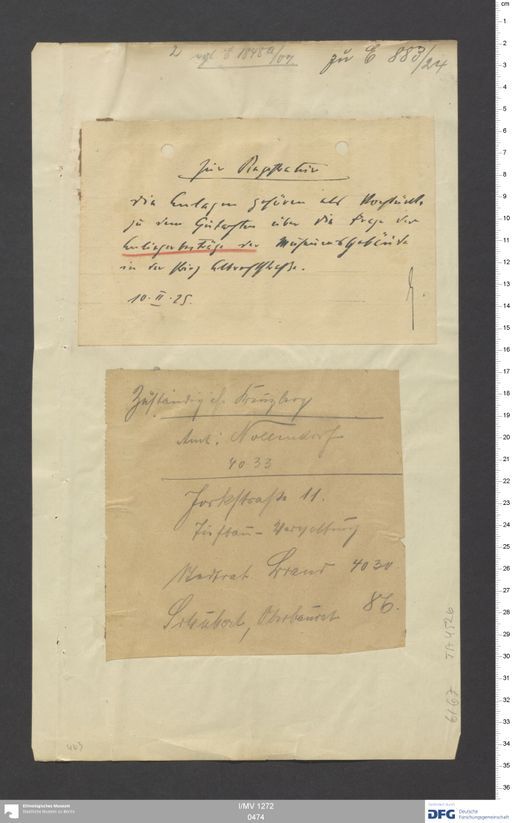 2 vgl. E 1848a/07 zu E 883/24
Zur Registratur
Die Anlagen gehören als Vorstück
zu dem Gutachten über die Frage der
Anliegerbeiträge der Museumsgebäude
in der Prinz Albrechtstraße.
10.II.25.
Zuständig ist Kreuzberg
Amt: Nollendorf
40 33
Yorkstraße 11.
Tiefbau-Verwaltung
Stadtrat 4030
Oberbaurat 86.
TA 4526
6167
463
Ethnologisches Museum
Staatliche Museen zu Berlin
I/MV 1272
0474
DFG Deutsche
Forschungsgemeinschaft
cm
1
2
3
4
5
6
7
8
9
10
11
12
13
14
15
16
17
18
19
20
21
22
23
24
25
26
27
28
29
30
31
32
33
34
35
36